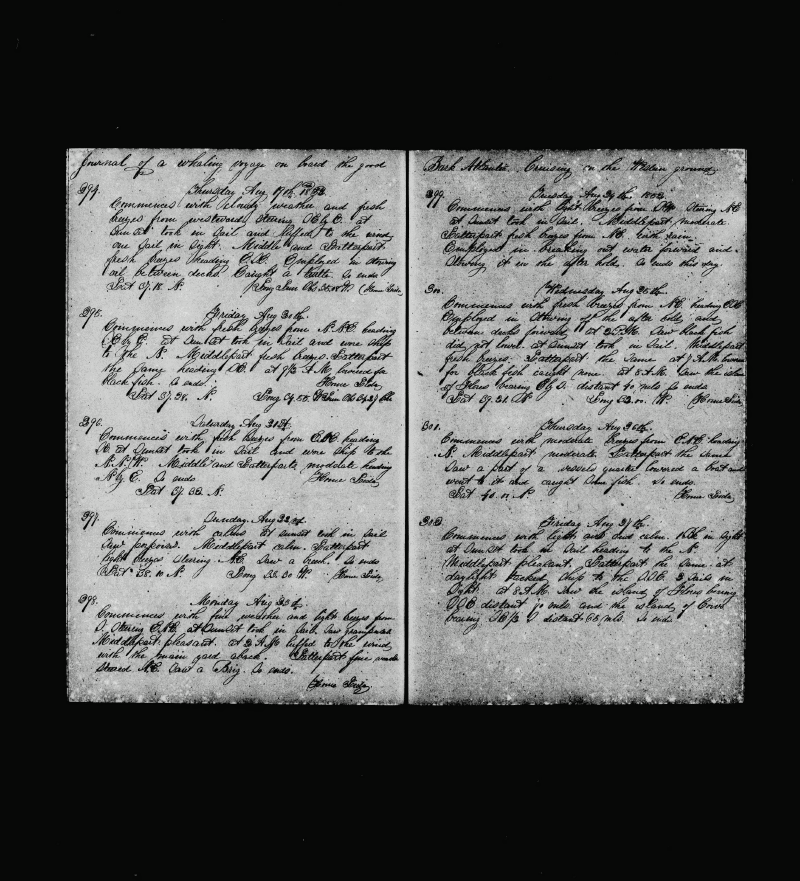 Journal of a whaling voyage on board the good
294. Thursday Aug 19th 1852
Commences with cloudy weather and fresh
breezes from westward steering at
Sunset took in Sail and luffed to the wind
one Sail in Sight. Middle and Latterpart
fresh breezes heading Employed in stowing
oil between decks Caught a turtle So ends
Lat 37.18. N.
295. Friday Aug 20th
Commences with fresh breezes from N.N.E. heading
E. by S. at Sunset took in Sail and wore Ship
to the N. Middlepart fresh breezes. Latterpart
the Same heading at A.M. lowered for
black fish. So ends.
Lat 37.38. N. Long
296. Saturday Aug 21st
Commences with fresh breezes from heading
at Sunset took in Sail and wore Ship to the
N.N.W. Middle and Latterparts moderate heading
N. by E. So ends
Lat 37.52. N.
297. Sunday Aug 22nd
Commences with calms at Sunset took in Sail
Saw porpoises. Middlepart calm. Latterpart
light breezes steering Saw a breach. So ends
Lat 38.10 N. Long 33.30 W.
298. Monday Aug 23rd
Commences with fine weather and light breezes from
S. Steering at Sunset took in Sail. Saw grampuses
Middlepart pleasant. at 2 A.M. luffed to the wind
with the main yard aback. Latterpart fine weather
Steered N.E. Saw a Brig. So ends.
Bark Atlantic Cruising on the Western ground
299. Tuesday Aug 24th 1852
Commences with light breezes from Steering
at Sunset took in Sail. Middlepart moderate
Latterpart fresh breezes from with rain
Employed in breaking out water forward and
Stowing it in the after hole. So ends this day
300. Wednesday Aug 25th
Commences with fresh breezes from heading
Employed in Stowing off the after hole and
between decks forward at 2 P.M. Saw black fish
did not lower. at Sunset took in Sail. Middlepart
fresh breezes. Latterpart the Same at 7 A.M. lowered
for black fish caught none at 8 A.M. Saw the island
of Flores bearing distant 40 mls So ends
Lat 39.31. N. Long W.
301. Thursday Aug 26th
Commences with moderate breezes from heading
N. Middlepart moderate. Latterpart the Same
Saw a part of a vessels quarter lowered a boat and
went to it and caught Some fish. So ends.
Lat 40.01. N.
302. Friday Aug 27th
Commences with light airs and calm. in Sight
at Sunset took in Sail heading to the N.
Middlepart pleasant. Latterpart the Same at
daylight tacked Ship to the 2 Sails in
Sight. at 8 A.M. Saw the island of Flores bearing
distant 70 mls and the island of Corvo
bearing distant 65 mls. So ends